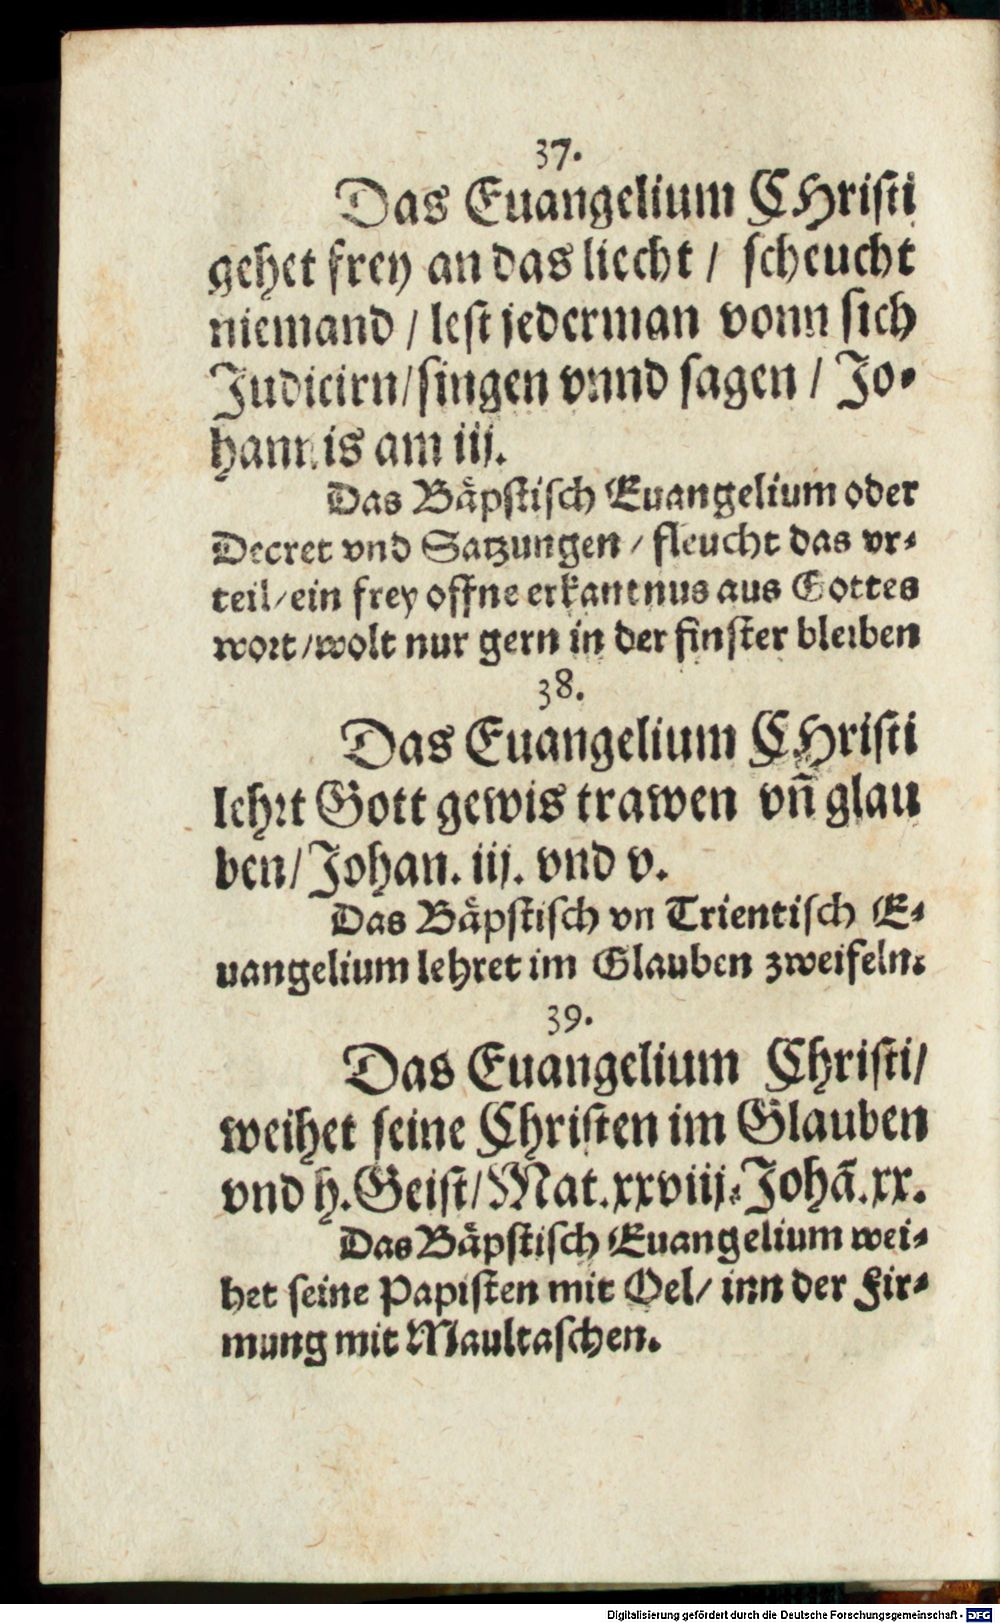 37.
Das Euangelium CHristi
gehet frey an das liecht / scheucht
niemand / lest jederman vonn sich
Judicirn/singen vnnd sagen / Jo-
hannis am iij.
Das Bäpstisch Euangelium oder
Decret vnd Satzungen / fleucht das vr-
teil/ein frey offne erkantnus aus Gottes
wort/wolt nur gern in der finster bleiben
38.
Das Euangelium CHristi
lehrt Gott gewis trawen vñ glau
ben/Johan. iij. vnd v.
Das Bäpstisch vn Trientisch E-
uangelium lehret im Glauben zweifeln.
39.
Das Euangelium Christi/
weihet seine Christen im Glauben
vnd h. Geist/Mat. xxviij. Johã. xx.
Das Bäpstisch Euangelium wei-
het seine Papisten mit Oel/ inn der Fir-
mung mit Maultaschen.
Digitalisierung gefördert durch die Deutsche Forschungsgemeinschaft - DFG